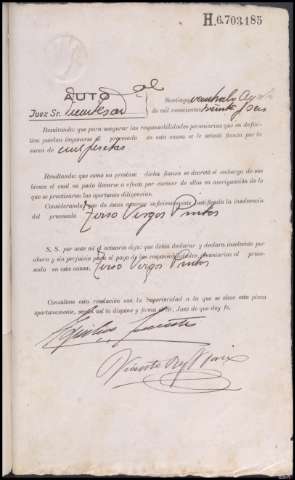 H.6.703.185
AUTO
Santiago veintiseis Agosto
Juez Sr.
de mil novecientos treinta y seis
Resultando: que para asegurar las responsabilidades pecuniarias que en definitiva puedan imponerse al procesado en esta causa se le señaló fianza por la
suma de mil pesetas
Resultando: que como no prestase dicha fianza se decretó el embargo de sus
bienes el cual no pudo llevarse a efecto por carecer de ellos en averiguación de lo
que se practicaron las oportunas diligencias.
Considerando: que de éstas aparece suficientemente justificada la insolvencia
del procesado Tirso Virgos Pintos
S. S. por ante mí el actuario dijo: que debía declarar y declara insolvente por
ahora y sin perjuicio para el pago de las responsabilidades pecuniarias al procesado en esta causa Tirso Virgos Pintos
Consúltese esta resolución con la Superioridad a la que se eleve esta pieza
oportunamente, pues así lo dispone y firma el Sr. Juez de que doy fe.